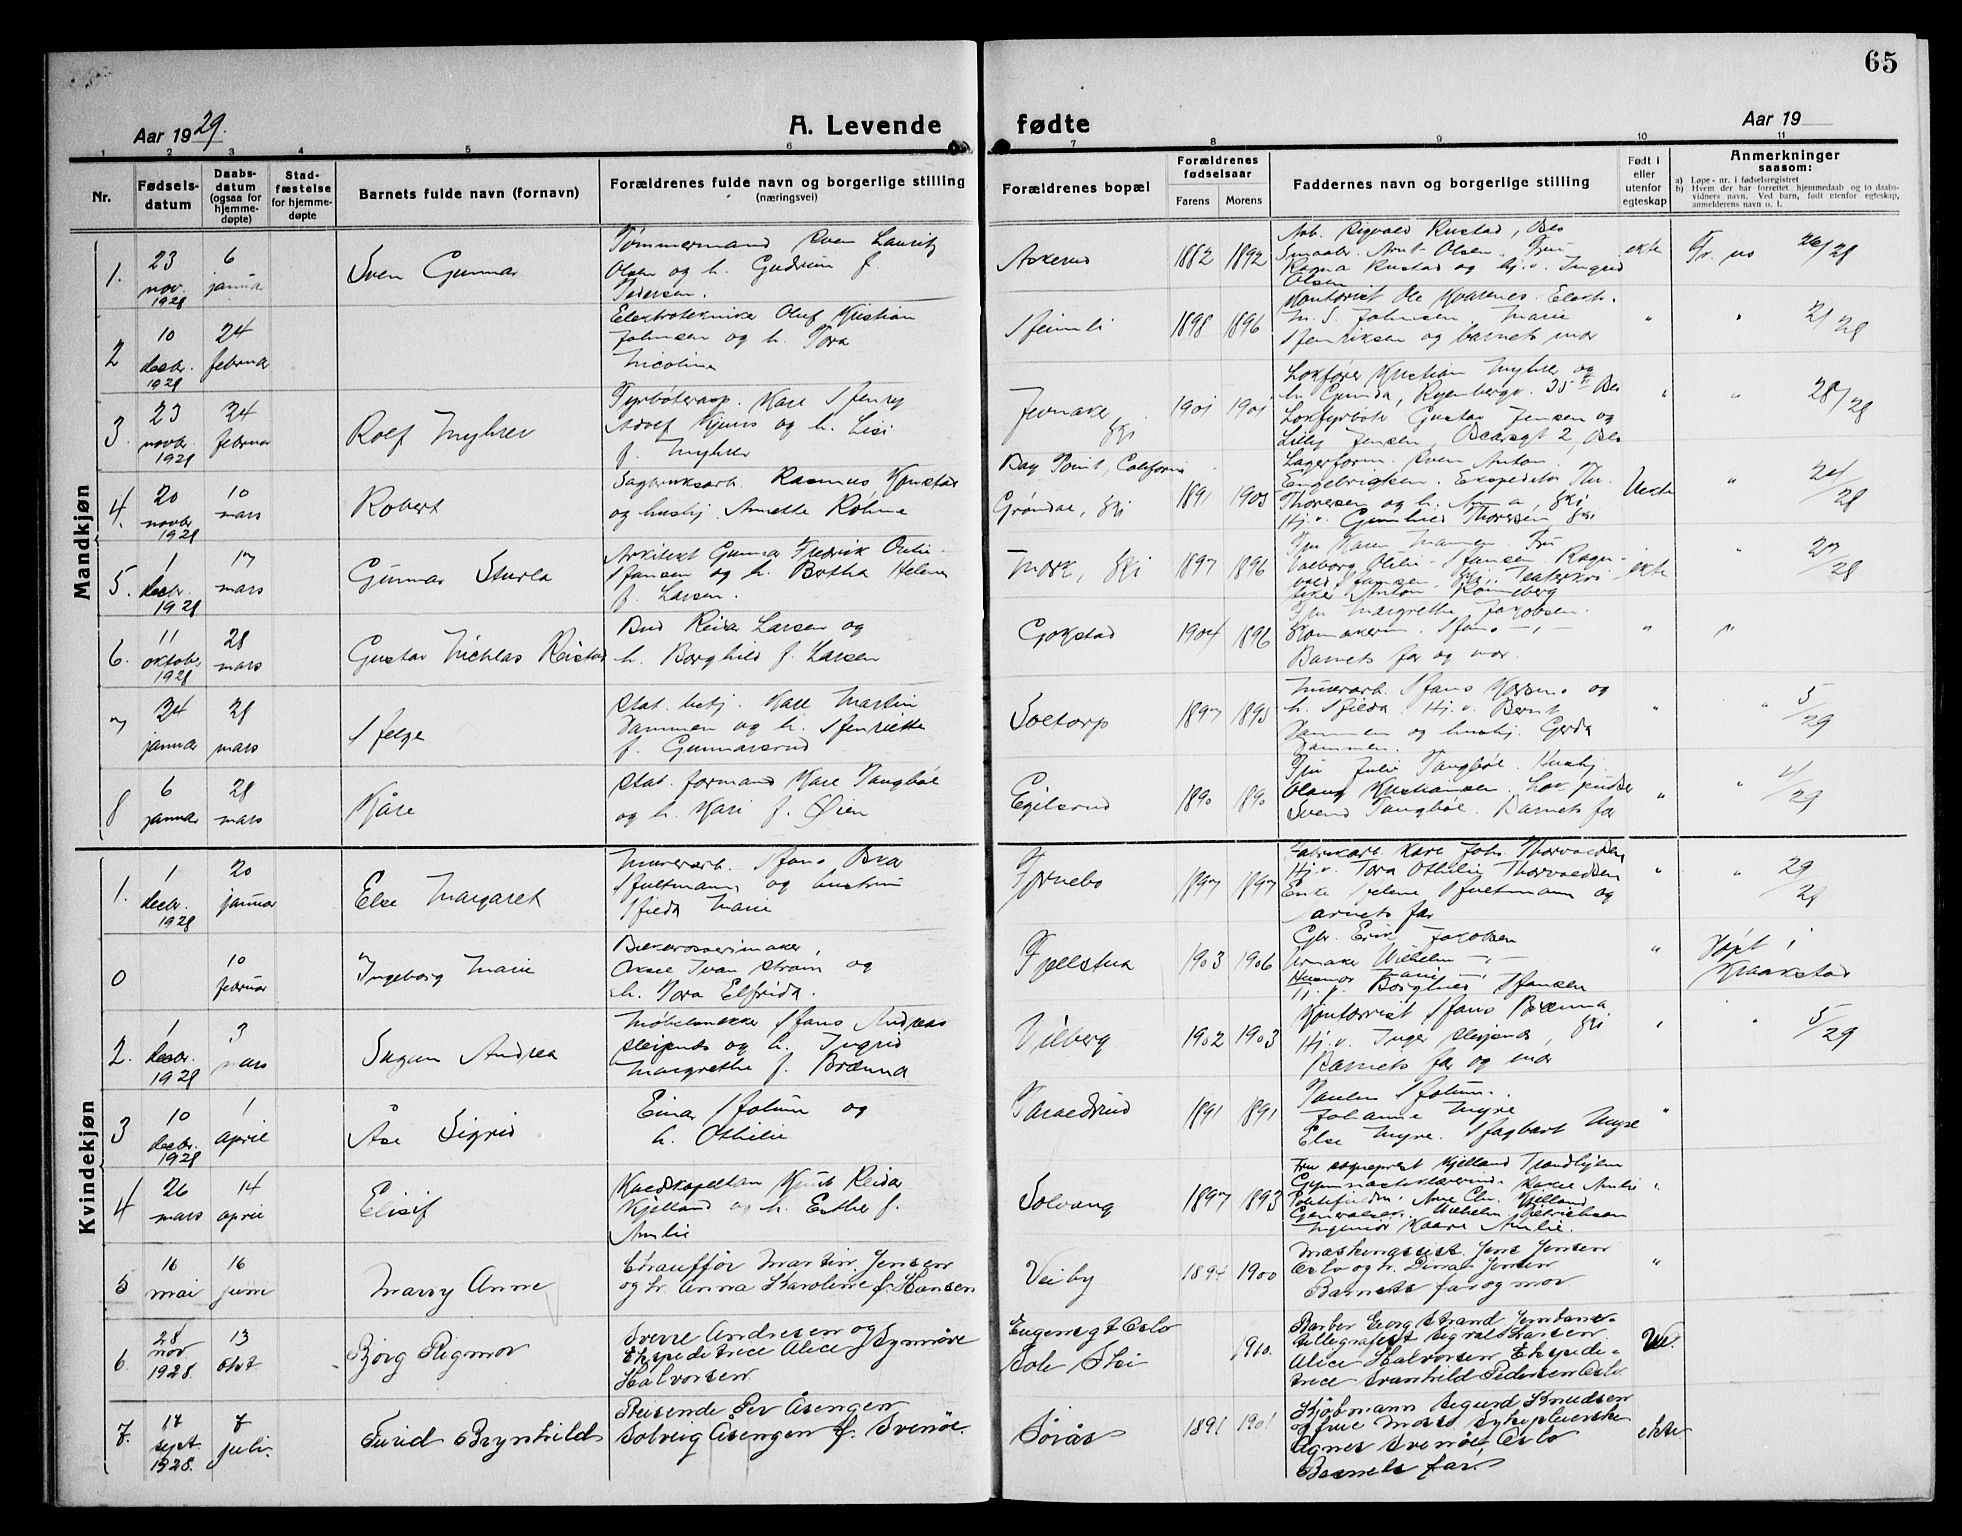 65
Aar 1929.
A. Levende fødte
Aar 19
1 2 3 4 5 6 7 8 9 10 11
Nr.
Fødsels-
datum
Daabs-
datum
(ogsaa for
hjemme-
døpte)
Stad-
fæstelse
for hjemme-
døpte
Barnets fulde navn (fornavn)
Forældrenes fulde navn og borgerlige stilling
(næringsvei)
Forældrenes bopæl
Forældrenes
fødselsaar
Farens Morens
Faddernes navn og borgerlige stilling
Født i
eller
utenfor
egteskap
Anmerkninger
saasom:
a) Løpe-nr. i fødselsregistret
b) Hvem der har forrettet hjemmedaab og to daabs-
vidners navn. Ved barn, født utenfor egteskap,
anmelderens navn o. l.
Mandkjøn
1. 23 nov. 1928
6 januar
Sven Gunnar
Tømmermand Sven Lauritz
Olsen og h. Gudrun f.
Pedersen.
Askerud
1882 1892
Arb. Sigvald Rustad, Oslo
Arnt Olsen. Fru
Ragna Rustad og hj.v. Ingrid
Olsen
ekte
26/28
2 10 decbr. 1928
24 februar
Electrotekniker Oluf Kristian
Johnsen og h. Tora
Nicoline
Heimli
1898 1896
Kontorist Ole Electr.
M. S. Johnsen. Marie
Henriksen og barnets mor
"
"
3. 23 novbr. 1928
24 februar
Rolf Myhrer
Fyrbøterasp. Karl Henry
Adolf og h. Lisi
f. Myhrer
Jernake Ski
1901 1901
Lokfører Kristian Myhrer og
h. Gunda, Ryenbergv. 35 Oslo
Lokfyrbøter Gustav Jensen og
Lilly Jensen, Oscarsgt 2, Oslo
"
" 28/28
4. 20 novbr. 1928
10 mars
Robert
Sagbruksarb. Rasmus
og hushj. Annette Røhme
Bay Point, California
Grøndal, Ski
1891 1903
Lagerform. Sven Anton
Engebrigtsen. Ekspeditør Th.
Thoresen og h. Anna Ski
Hj.v. Gunhild Thoresen, Ski
Uekte
"
5. 1 decbr. 1928
17 mars
Gunnar Sturla
Arkitekt Gunnar Fredrik Outie-
Hansen og h. Botha Helene
f. Larsen.
Mork, Ski
1897 1896
Fru Karen Fru
Valborg Hansen Ragn-
vald Hansen, Ski. Teaterkri-
tiker Anton Rønneberg
ekte
" 27/28
6. 11 oktober 1928
28 mars
Gustav Nicklas Reistad
Bud Reidar Larsen og
h. Borghild f. Larsen
Gokstad
1904 1896
Fru Margrethe Jakobsen.
Skomakerm. Hans —"—
Barnets far og mor.
"
"
7 24 januar
28 mars
Helge
Stat. betj. Karl Martin
Dammen og h. Henriette
f. Gunnarsrud
Soltorp
1897 1895
Murerarb. Hans og
h. Hilda. Hj.v. Bernt
Dammen og hushj. Gerda
Dammen.
"
" 5/29
8 6 januar
28 mars
Kåre
Stat. formand Karl Tangbøl
og h. Kari f. Øien
Egilsrud
1890 1890
Fru Julie Tangbøl. Hushj.
Olaug Kristiansen. Lok. pudser
Svend Tangbøl. Barnets far
"
" 4/29
Kvindekjøn
1. 1 decbr. 1928
20 januar
Else Margaret
Murerarb. Hans Oskar
Hultmann og hustru
Hilda Marie
Fjernebo
1897 1897
Fabrikarb. Karl Joh. Thorvaldsen
Hj.v. Tora Othilie Thorvaldsen
Enke Helene Hultmann og
Barnets far
"
" 29/28
0
10 februar
Ingeborg Marie
Aksel Ivar Strøm og
h. Nora Elfrida.
Fjellstua
1903 1906
Gbr. Erik Jakobsen
Urmaker Wilhelm —"—
Marie —"—
Hj.v. Borghild Hansen
"
Døpt i
Kraakstad
2. 1 decbr. 1928
3 mars
Sugum Andrea
Møbelsnekker Hans Andreas
Sleipnes og h. Ingrid
Margrethe f. Brænna
Vilberg
1902 1903
Kontorrist Hans Brænna
Hj.v. Inger Sleipnes, Ski
Barnets far og mor
"
" 5/29
3 10 decbr. 1928
1 april
Åse Sigrid
Einar Holum og
h. Othilie
Taraldrud
1891 1891
Paulus Holum.
Johanne Myre
Else Myre. Hagbart Myre
"
4 26 mars
14 april
Elisif
Kaldskapellan Knut Reidar
Kjelland og h. Esther f.
Amlie
Solvang
1897 1893
Fru sogneprest Kjelland Trondhjem
Amlie
Arne Chr. Kjelland
Wilhelm Dietrichsen
Ingeniør Kaare Amlie.
"
5 16 mai
16 juni
Marry Anne
Chauffør Martin Jensen
og h. Anna Karoline f. Hansen
Veiby
1894 1900
Maskinassist. Jens Jensen
Oslo og h. Dina Jensen
Barnets far og mor
"
6 28 nov 1928.
13 okt
Bjørg Rigmor
Sverre Andresen og
Ekspeditrice Alice Synnøve
Halvorsen
Eugensgt Oslo
Sole Ski
1910.
Barber Georg Strand Jernbane-
tillegrafist Sigvald Larsen
Alice Halvorsen Ekspedi-
trice Svanhild Pedersen Oslo.
Ue.
7. 17 sept. 1928.
7 juli.
Turid Brynhild
Reisende Per Åsengen
Solveig Åsengen f. Svenøe.
Sørås
1891 1901
Kjøbmann Sigurd Knudsen
og frue Moss Sykepleierske
Agnes Svenøe Oslo
Barnets far.
ekte